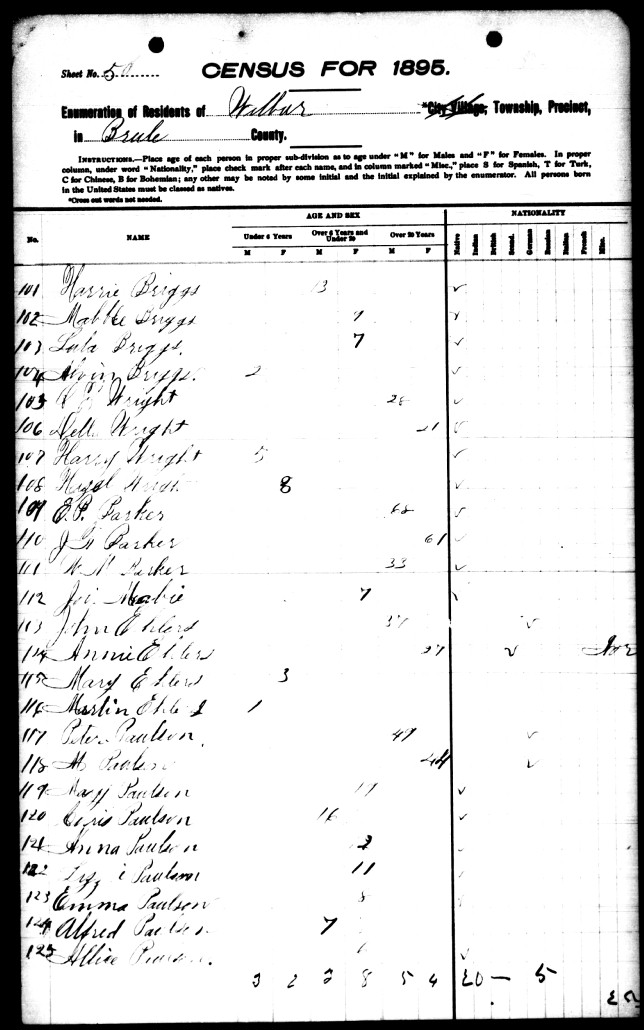 Sheet No. 5
CENSUS FOR 1895.
Enumeration of Residents of Wilbur *City Village, Township, Precinct,
in Brule County.
INSTRUCTIONS.—Place age of each person in proper sub-division as to age under "M" for Males and "F" for Females. In proper
column, under word "Nationality," place check mark after each name, and in column marked "Misc.," place S for Spanish, T for Turk,
C for Chinese, B for Bohemian; any other may be noted by some initial and the initial explained by the enumerator. All persons born
in the United States must be classed as natives.
*Cross out words not needed.
AGE AND SEX NATIONALITY
No. NAME Under 6 Years Over 6 Years and Under 20 Over 20 Years Native Indian British Scand. German Russian Italian French Misc.
M F M F M F
101 Harrie Briggs 13 ✓
102 Briggs ✓
103 Lula Briggs. 7 ✓
104 Alvin Briggs. 2 ✓
105 Wright 28 ✓
106 Wright 21 ✓
107 Harry Wright 5 ✓
108 8 ✓
109 E.P. Parker 68 ✓
110 Parker 61 ✓
101 Parker 33 ✓
112 Mabie 7
113 John Ehlers ✓
114 Annie Ehlers ✓ Nor
115 Mary Ehlers 3
116 Ehlers 1
117 Peter Paulson. 49 ✓
118 Paulson 44 ✓
119 Mary Paulson ✓
120 Paulson 16 ✓
121 Anna Paulson
122 Paulson 11
123 Emma Paulson 8
124 Alfred Paulson 7
125 Allice ✓
3 2 3 8 5 4 20 — 5